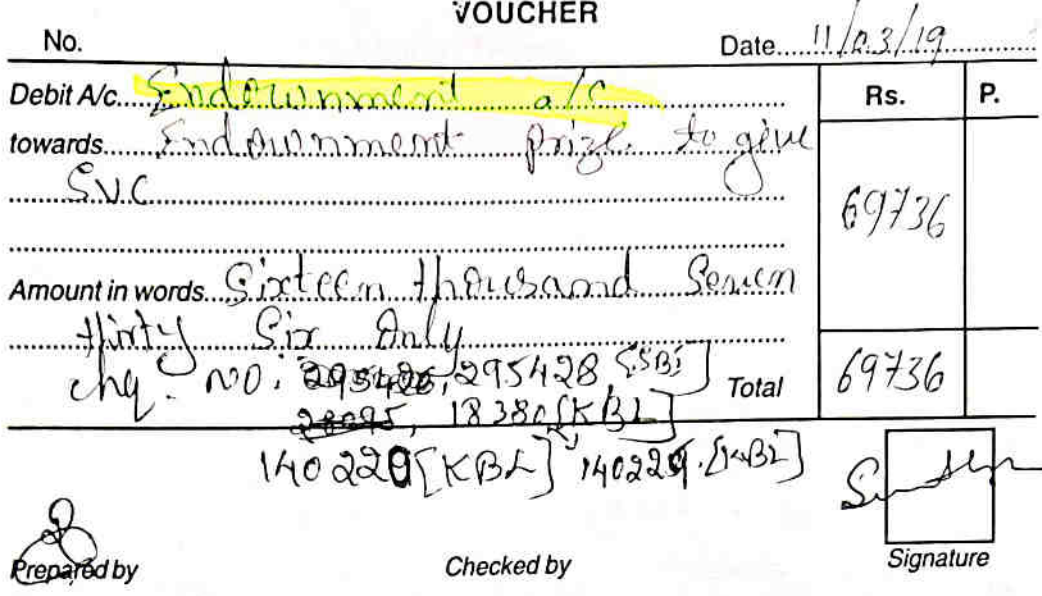 VOUCHER
No. Date 11/03/19
Debit A/c Endownment a/c Rs. P.
towards Endownment prize to give
SVC 69736
Amount in words Sixteen thousand Seven
thirty Six Only
chq. NO. 295426, 295428 [SBI] Total 69736
28095, 18380 [KBL]
140220 [KBL] 140229. [KBL]
Prepared by Checked by Signature